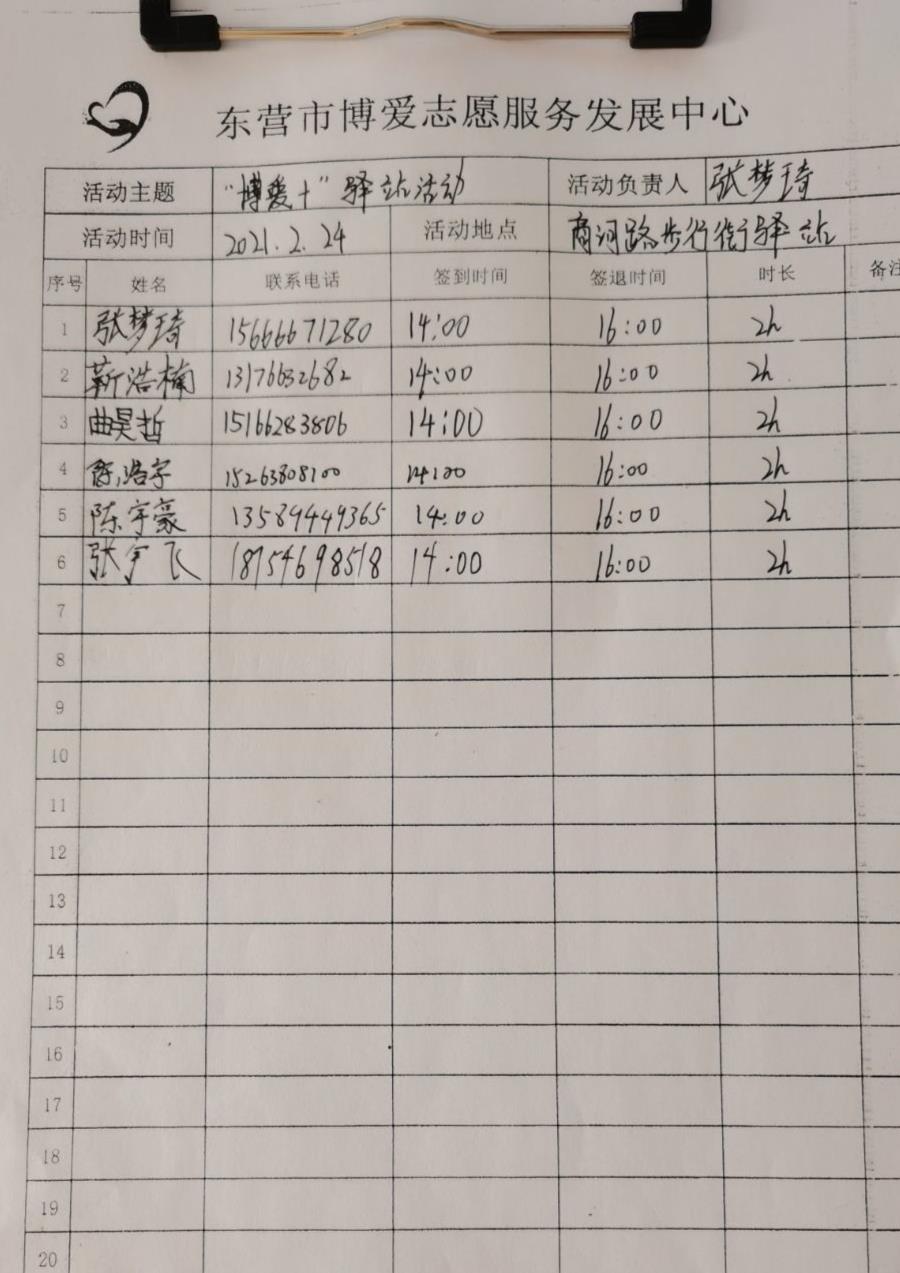 东营市博爱志愿服务发展中心
活动主题 “博爱+”驿站活动 活动负责人 张梦琦
活动时间 2021.2.24 活动地点 商河路步行街驿站
序号 姓名 联系电话 签到时间 签退时间 时长 备注
1 张梦琦 15666671280 14:00 16:00 2h
2 靳浩楠 13176632682 14:00 16:00 2h
3 曲昊哲 15166283806 14:00 16:00 2h
4 15263808100 14:00 16:00 2h
5 陈宇豪 13589449365 14:00 16:00 2h
6 张宇飞 18754698518 14:00 16:00 2h
7
8
9
10
11
12
13
14
15
16
17
18
19
20